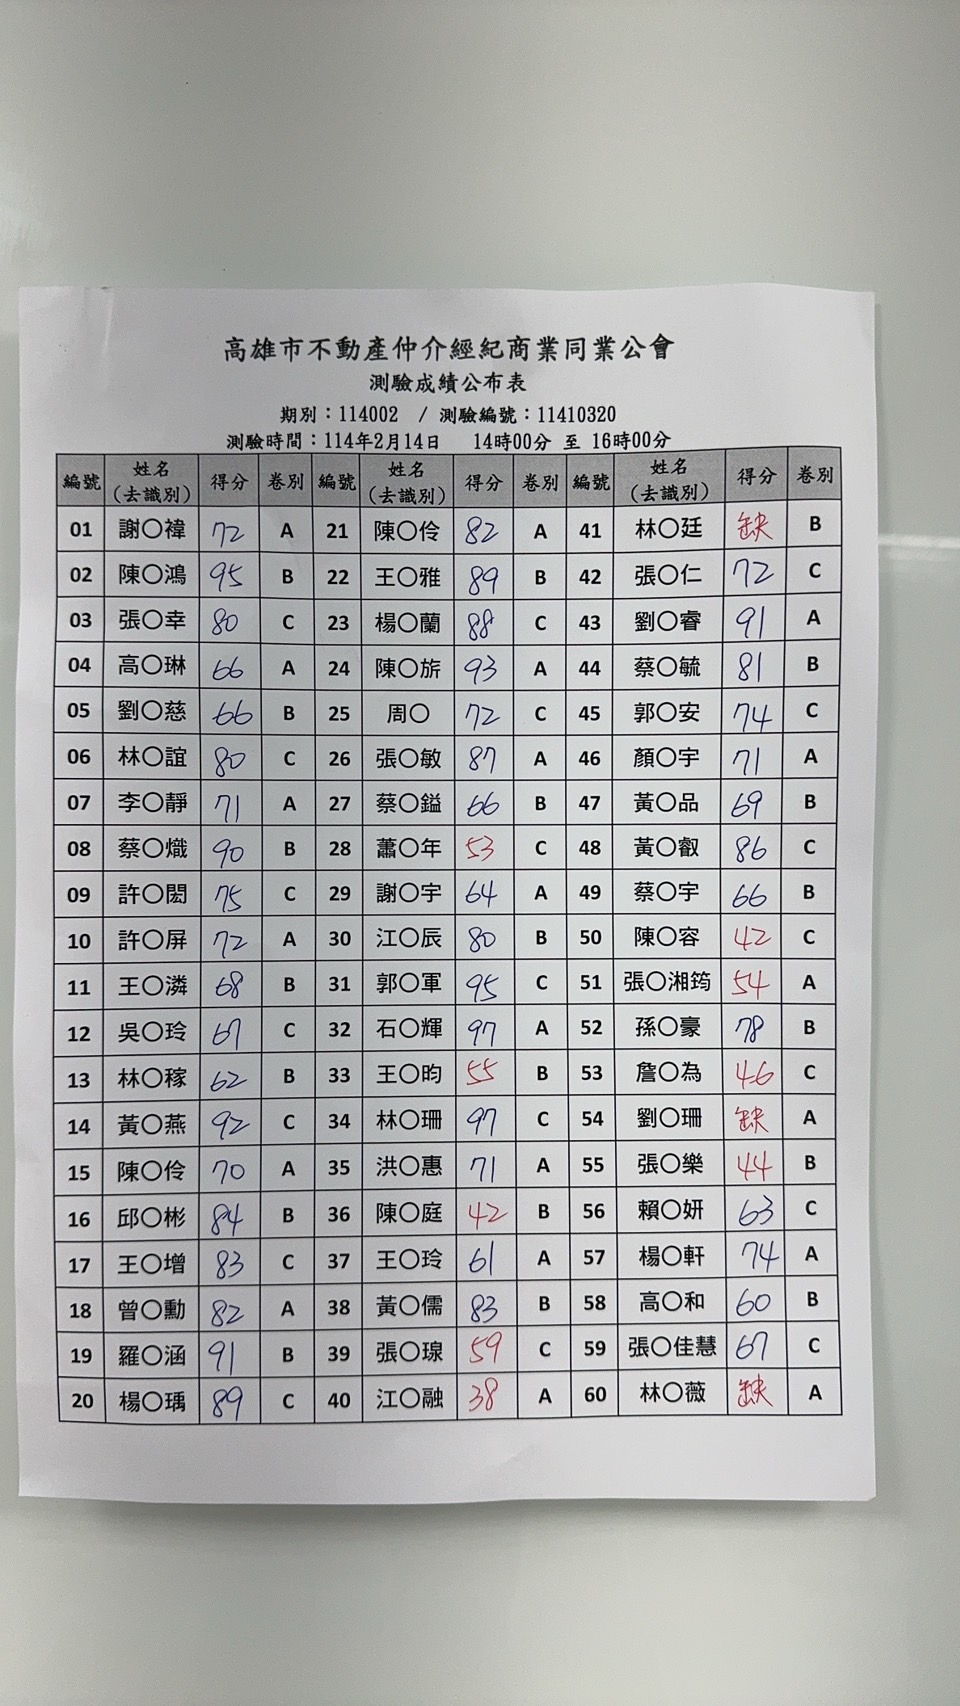 高雄市不動產仲介經紀商業同業公會
測驗成績公布表
期別：114002 / 測驗編號：11410320
測驗時間：114年2月14日 14時00分 至 16時00分
編號 姓名（去識別） 得分 卷別 編號 姓名（去識別） 得分 卷別 編號 姓名（去識別） 得分 卷別
01 謝〇禕 72 A 21 陳〇伶 82 A 41 林〇廷 缺 B
02 陳〇鴻 95 B 22 王〇雅 89 B 42 張〇仁 72 C
03 張〇幸 80 C 23 楊〇蘭 88 C 43 劉〇睿 91 A
04 高〇琳 66 A 24 陳〇旂 93 A 44 蔡〇毓 81 B
05 劉〇慈 66 B 25 周〇 72 C 45 郭〇安 74 C
06 林〇誼 80 C 26 張〇敏 87 A 46 顏〇宇 71 A
07 李〇靜 71 A 27 蔡〇鎰 66 B 47 黃〇品 69 B
08 蔡〇熾 90 B 28 蕭〇年 53 C 48 黃〇叡 86 C
09 許〇閎 75 C 29 謝〇宇 64 A 49 蔡〇宇 66 B
10 許〇屏 72 A 30 江〇辰 80 B 50 陳〇容 42 C
11 王〇潾 68 B 31 郭〇軍 95 C 51 張〇湘筠 54 A
12 吳〇玲 67 C 32 石〇輝 97 A 52 孫〇豪 78 B
13 林〇稼 62 B 33 王〇昀 55 B 53 詹〇為 46 C
14 黃〇燕 92 C 34 林〇珊 97 C 54 劉〇珊 缺 A
15 陳〇伶 70 A 35 洪〇惠 71 A 55 張〇樂 44 B
16 邱〇彬 84 B 36 陳〇庭 42 B 56 賴〇妍 63 C
17 王〇增 83 C 37 王〇玲 61 A 57 楊〇軒 74 A
18 曾〇勳 82 A 38 黃〇儒 83 B 58 高〇和 60 B
19 羅〇涵 91 B 39 張〇瑔 59 C 59 張〇佳慧 67 C
20 楊〇瑀 89 C 40 江〇融 38 A 60 林〇薇 缺 A